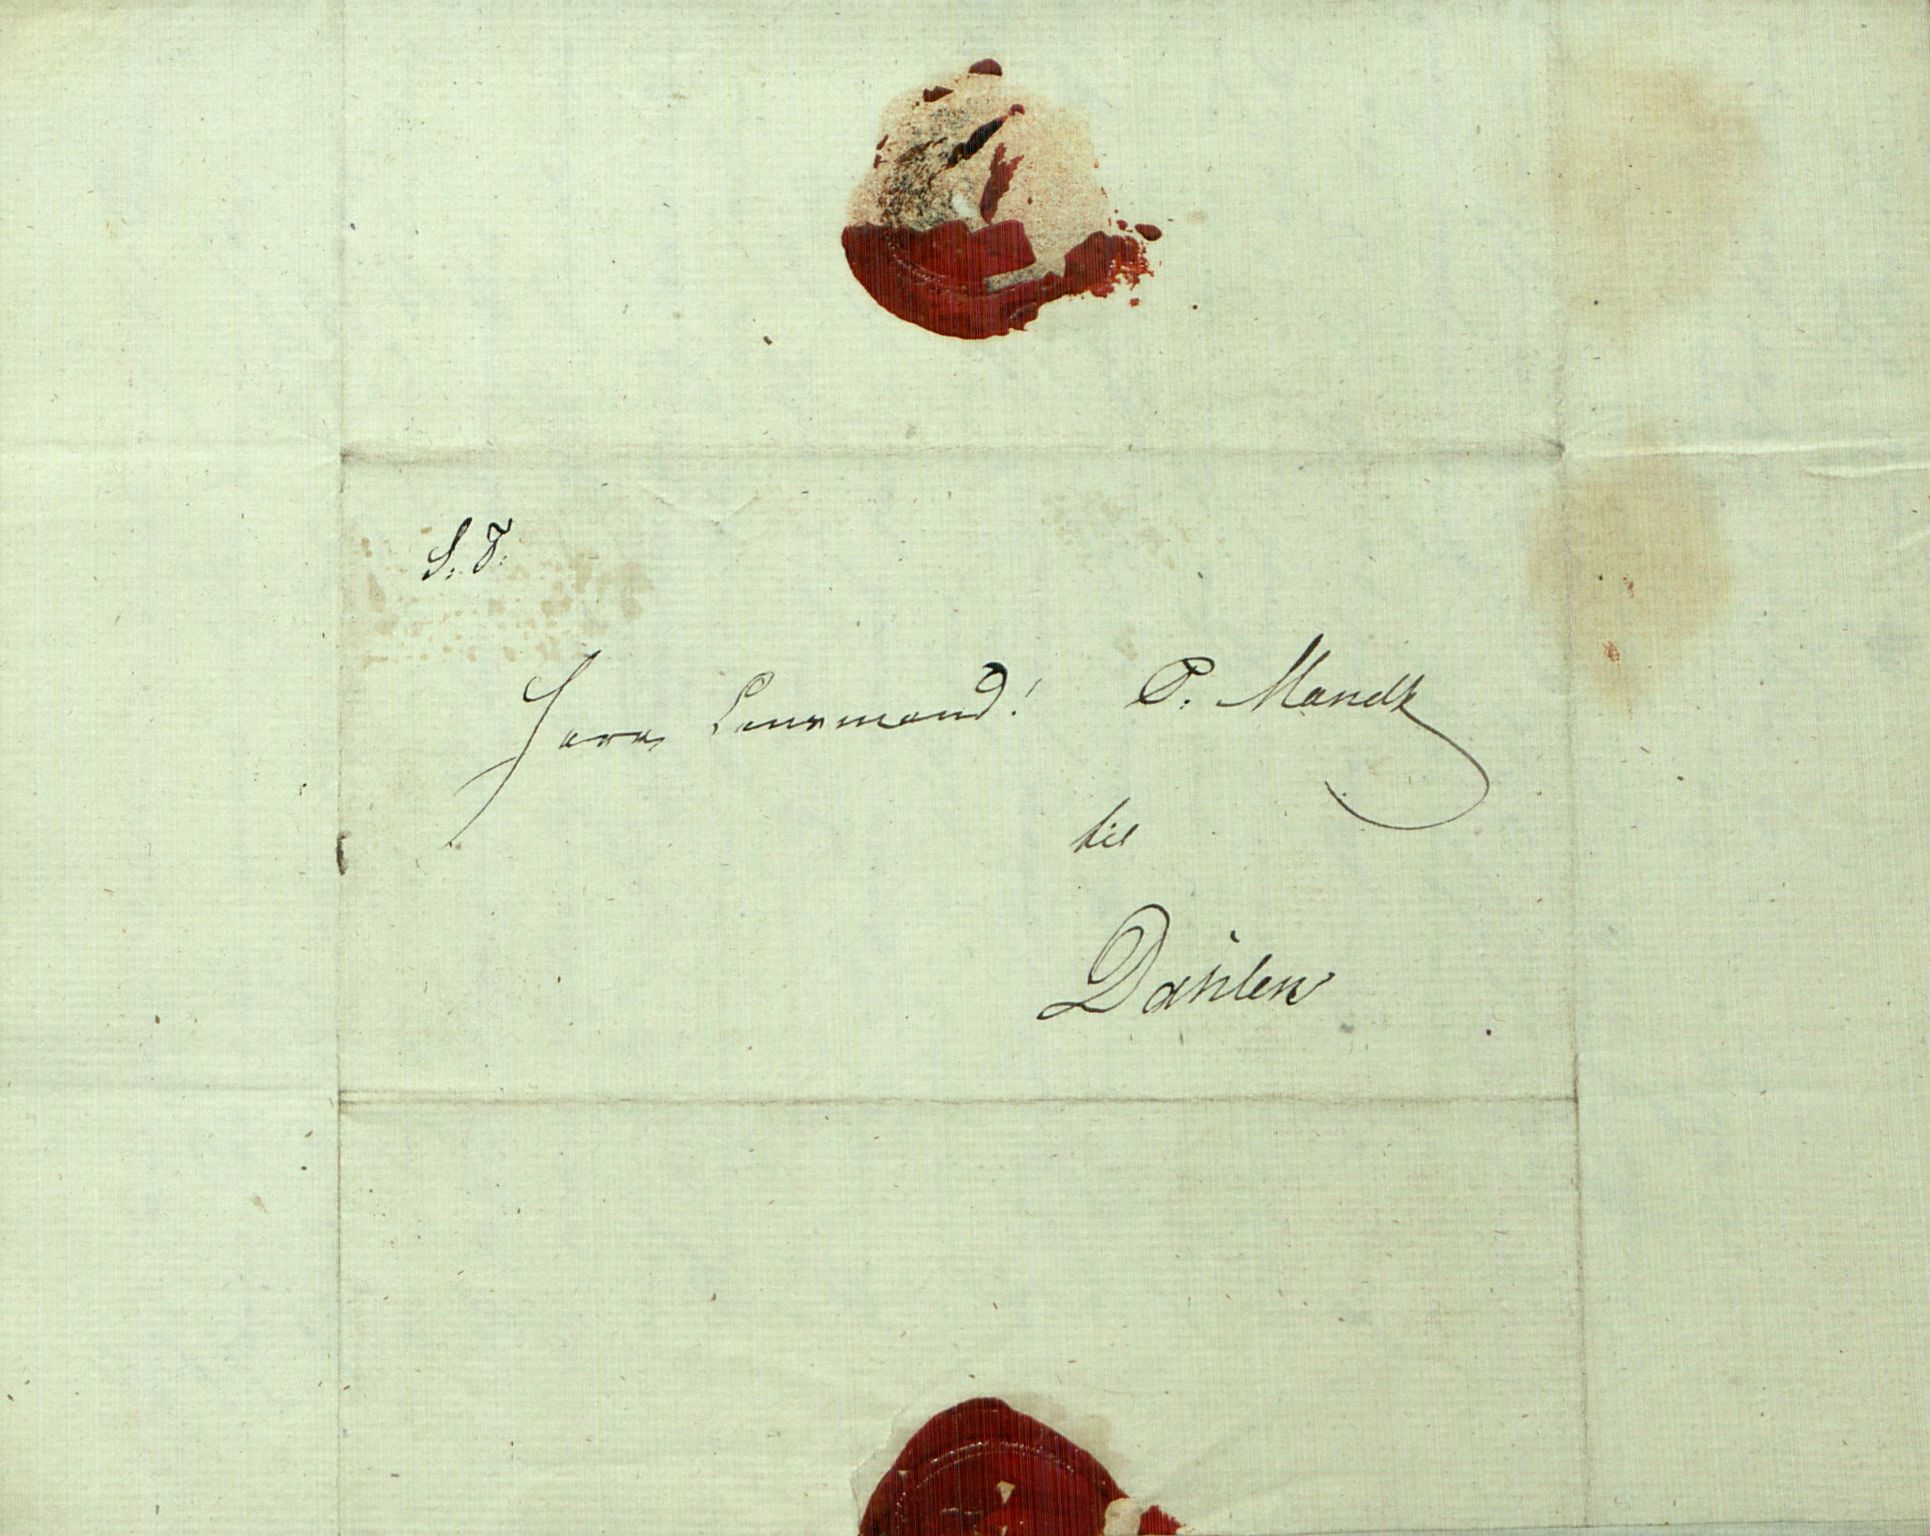 S. T.
Herr Lensmand! P. Mandt
til
Dahlen